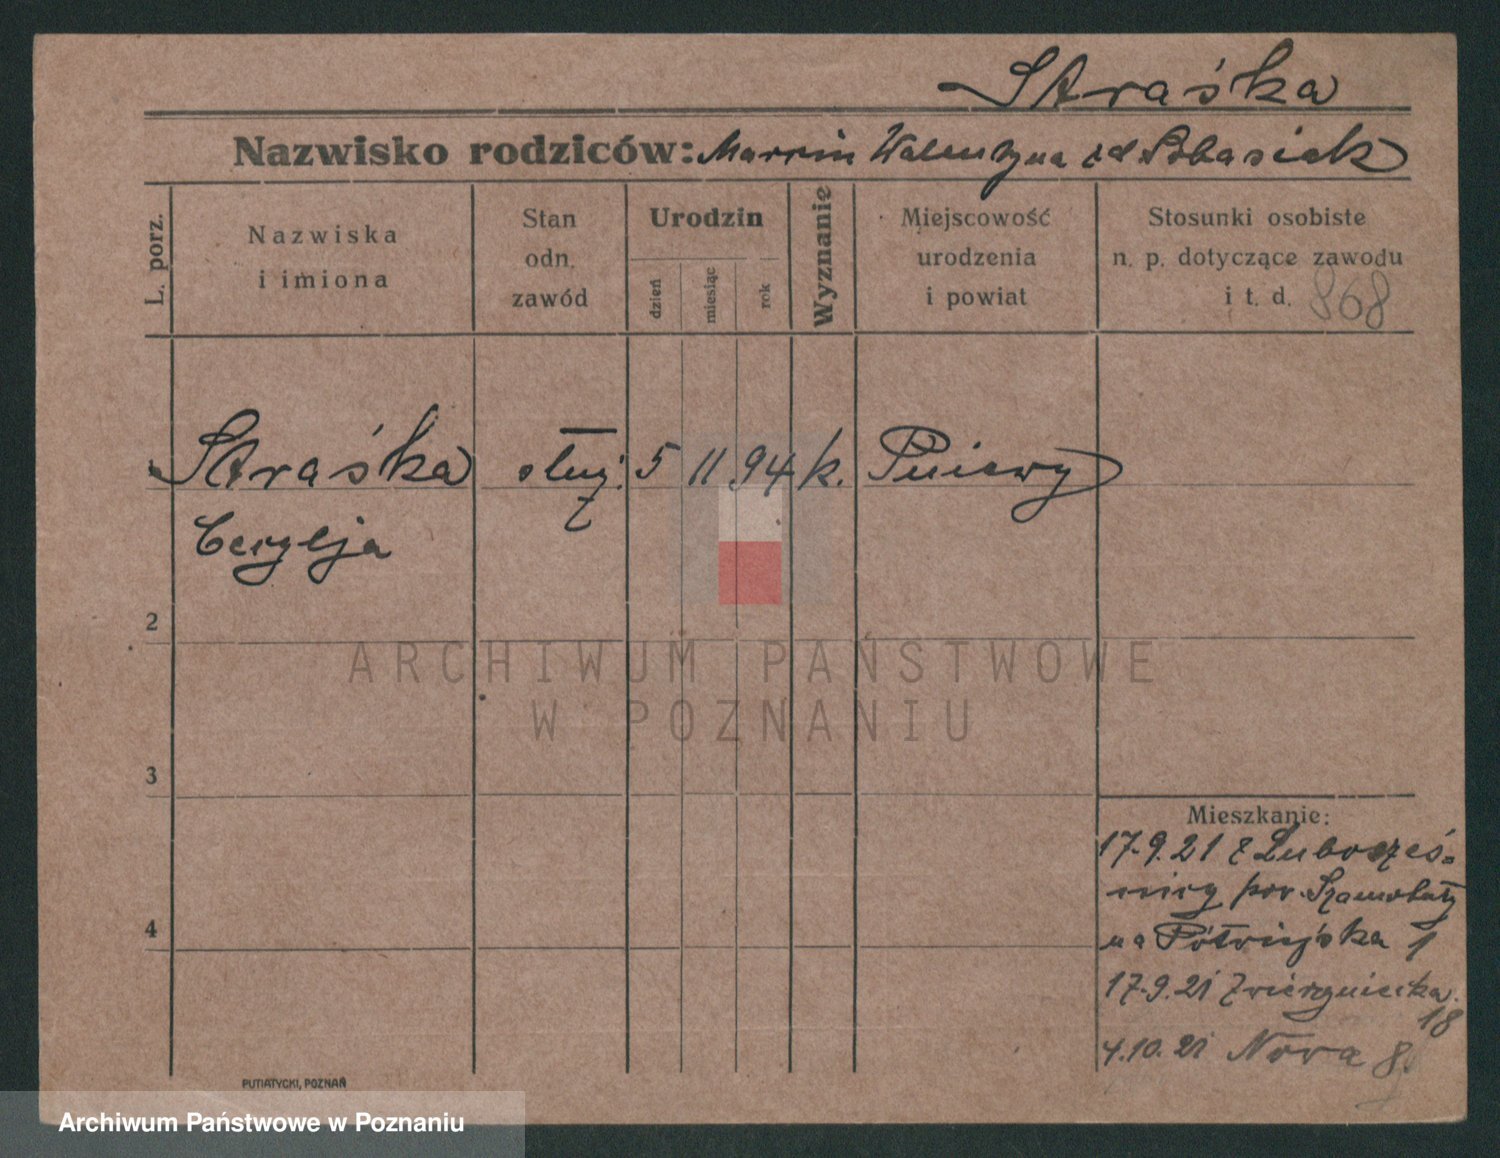 Straśka
Nazwisko rodziców: Marcin Walentyna
L. porz.
Nazwiska
i imiona
Stan
odn.
zawód
Urodzin
dzień
miesiąc
rok
Wyznanie
Miejscowość
urodzenia
i powiat
Stosunki osobiste
n. p. dotyczące zawodu
i t. d. 868
Straśka służ. 5 11 94 k. Pniewy
Cecylja
2
ARCHIWUM PAŃSTWOWE
W POZNANIU
3
Mieszkanie:
17.9.21 z Lubocześ=
nicy pow. Szamotuły
4
na Półwiejska 1
17.9.21 Zwierzyniecka
18
4.10.21 Nowa 8.
PUTIATYCKI, POZNAŃ
Archiwum Państwowe w Poznaniu